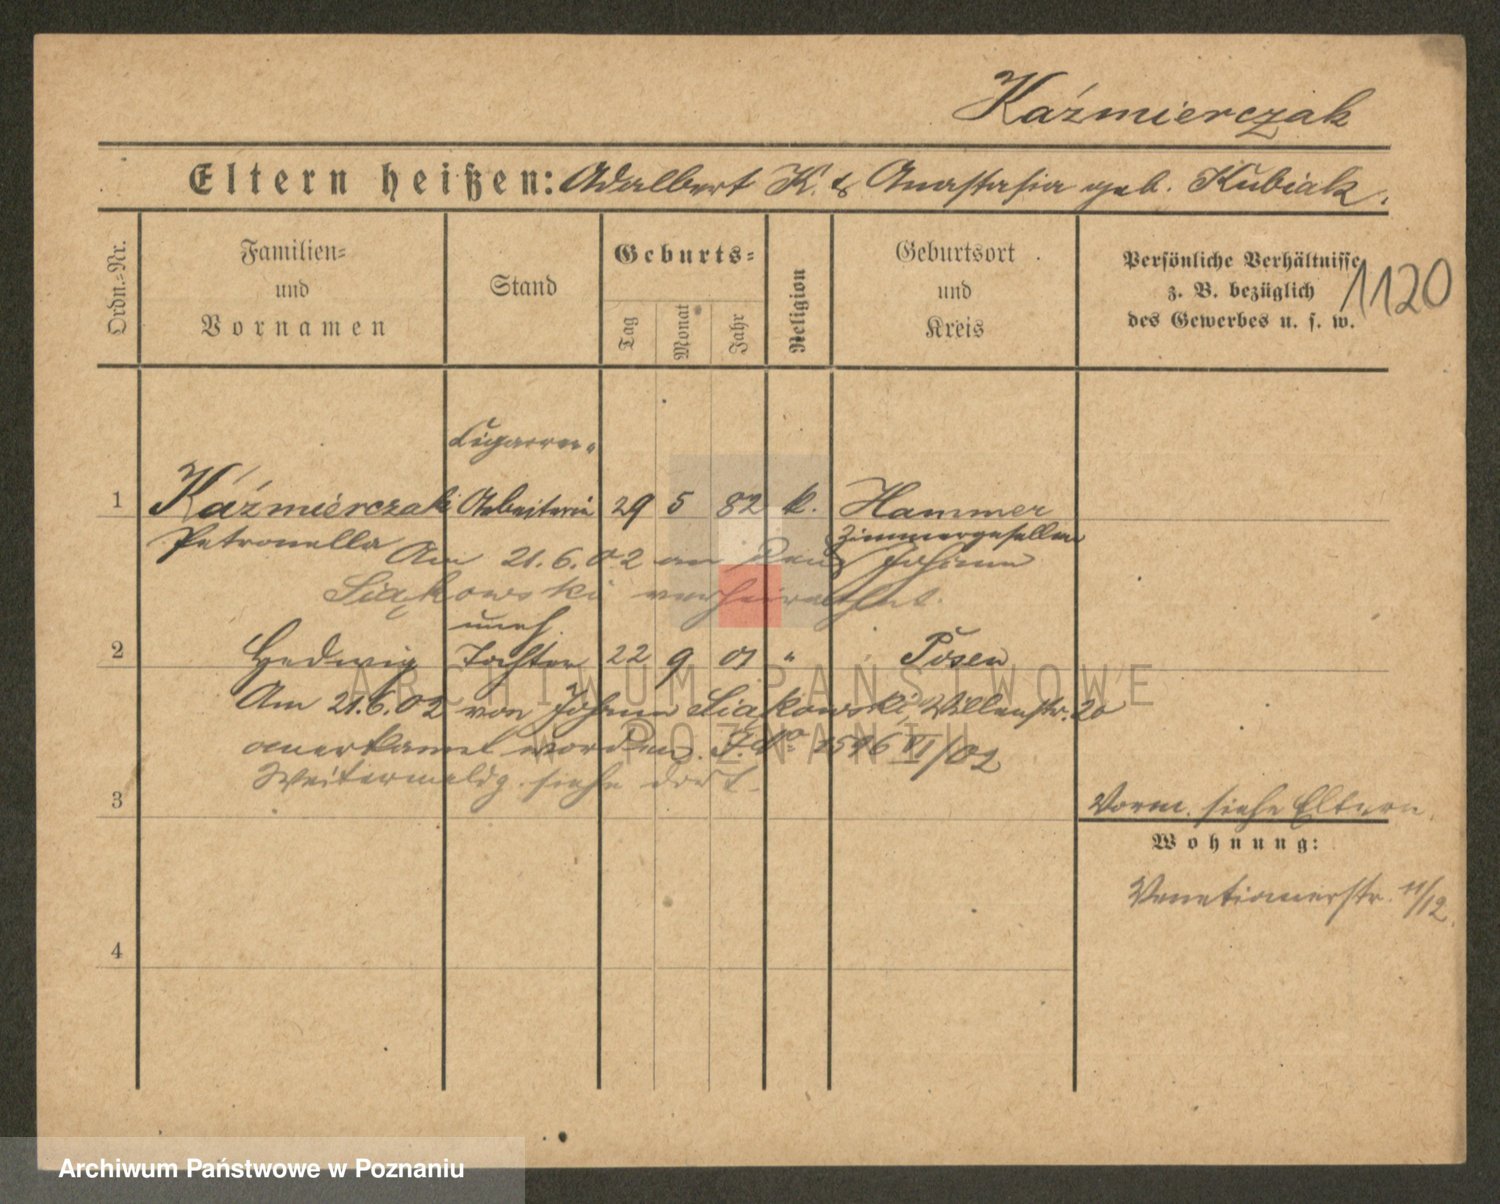 Kaźmierczak
Eltern heißen: Adalbert K. & Anastasia geb. Kubiak.
Ordn.-Nr.
Familien-
und
Vornamen
Stand
Geburts-
Tag
Monat
Jahr
Religion
Geburtsort
und
Kreis
Persönliche Verhältnisse
z. B. bezüglich
des Gewerbes u. s. w.
1120
Cigarren-
1 Kaźmierczak Arbeiterin 29 5 82 k. Hammer
Petronella
Zimmergesellen
Am 21.6.02 an den Johann
Siąkowski verheirathet.
uneh.
2 Hedwig Tochter 22 9 01 " Posen
Am 21.6.02 von Johann Siąkowski, Villenstr. 20
anerkannt worden. J. No 1596 VI/02
Weitermeldg. siehe dort.
3
Vorm. siehe Eltern.
Wohnung:
Venetianerstr. 11/12.
4
ARCHIWUM PAŃSTWOWE
W POZNANIU
Archiwum Państwowe w Poznaniu